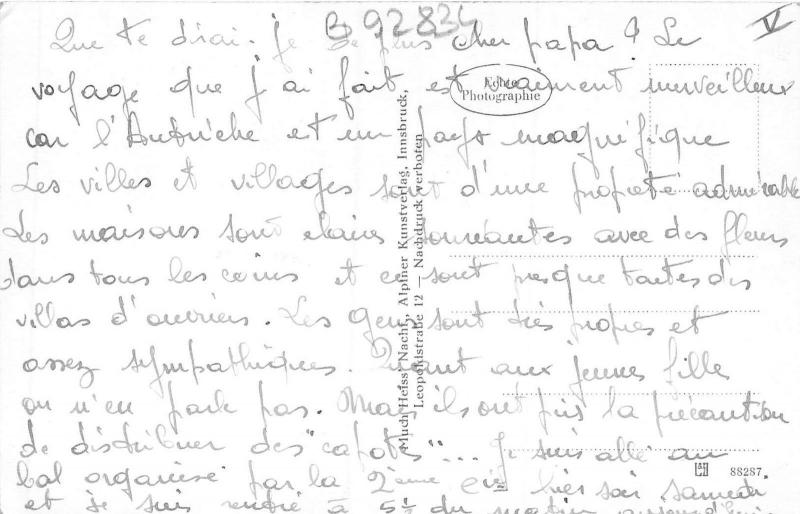 B 92834
V
Que te dirai-je de plus cher papa ? Le
voyage que j'ai fait est vraiment merveilleux
car l'Autriche et un pays magnifique
Les villes et villages sont d'une propreté admirable
Les maisons sont claires souriantes avec des fleurs
dans tous les coins et ce sont presque toutes des
villas d'ouvriers. Les gens sont très propres et
assez sympathiques. Quant aux jeunes fille
on n'en parle pas. Mais ils ont pris la précaution
de distribuer des "capotes"... Je suis allé au
bal organisé par la 2ème Cie hier soir samedi
et je suis rentré à 5h ½ du matin aujourd'hui
Echte
Photographie
Much Heiss' Nachf., Alpiner Kunstverlag, Innsbruck,
Leopoldstraße 12 — Nachdruck verboten
88287.